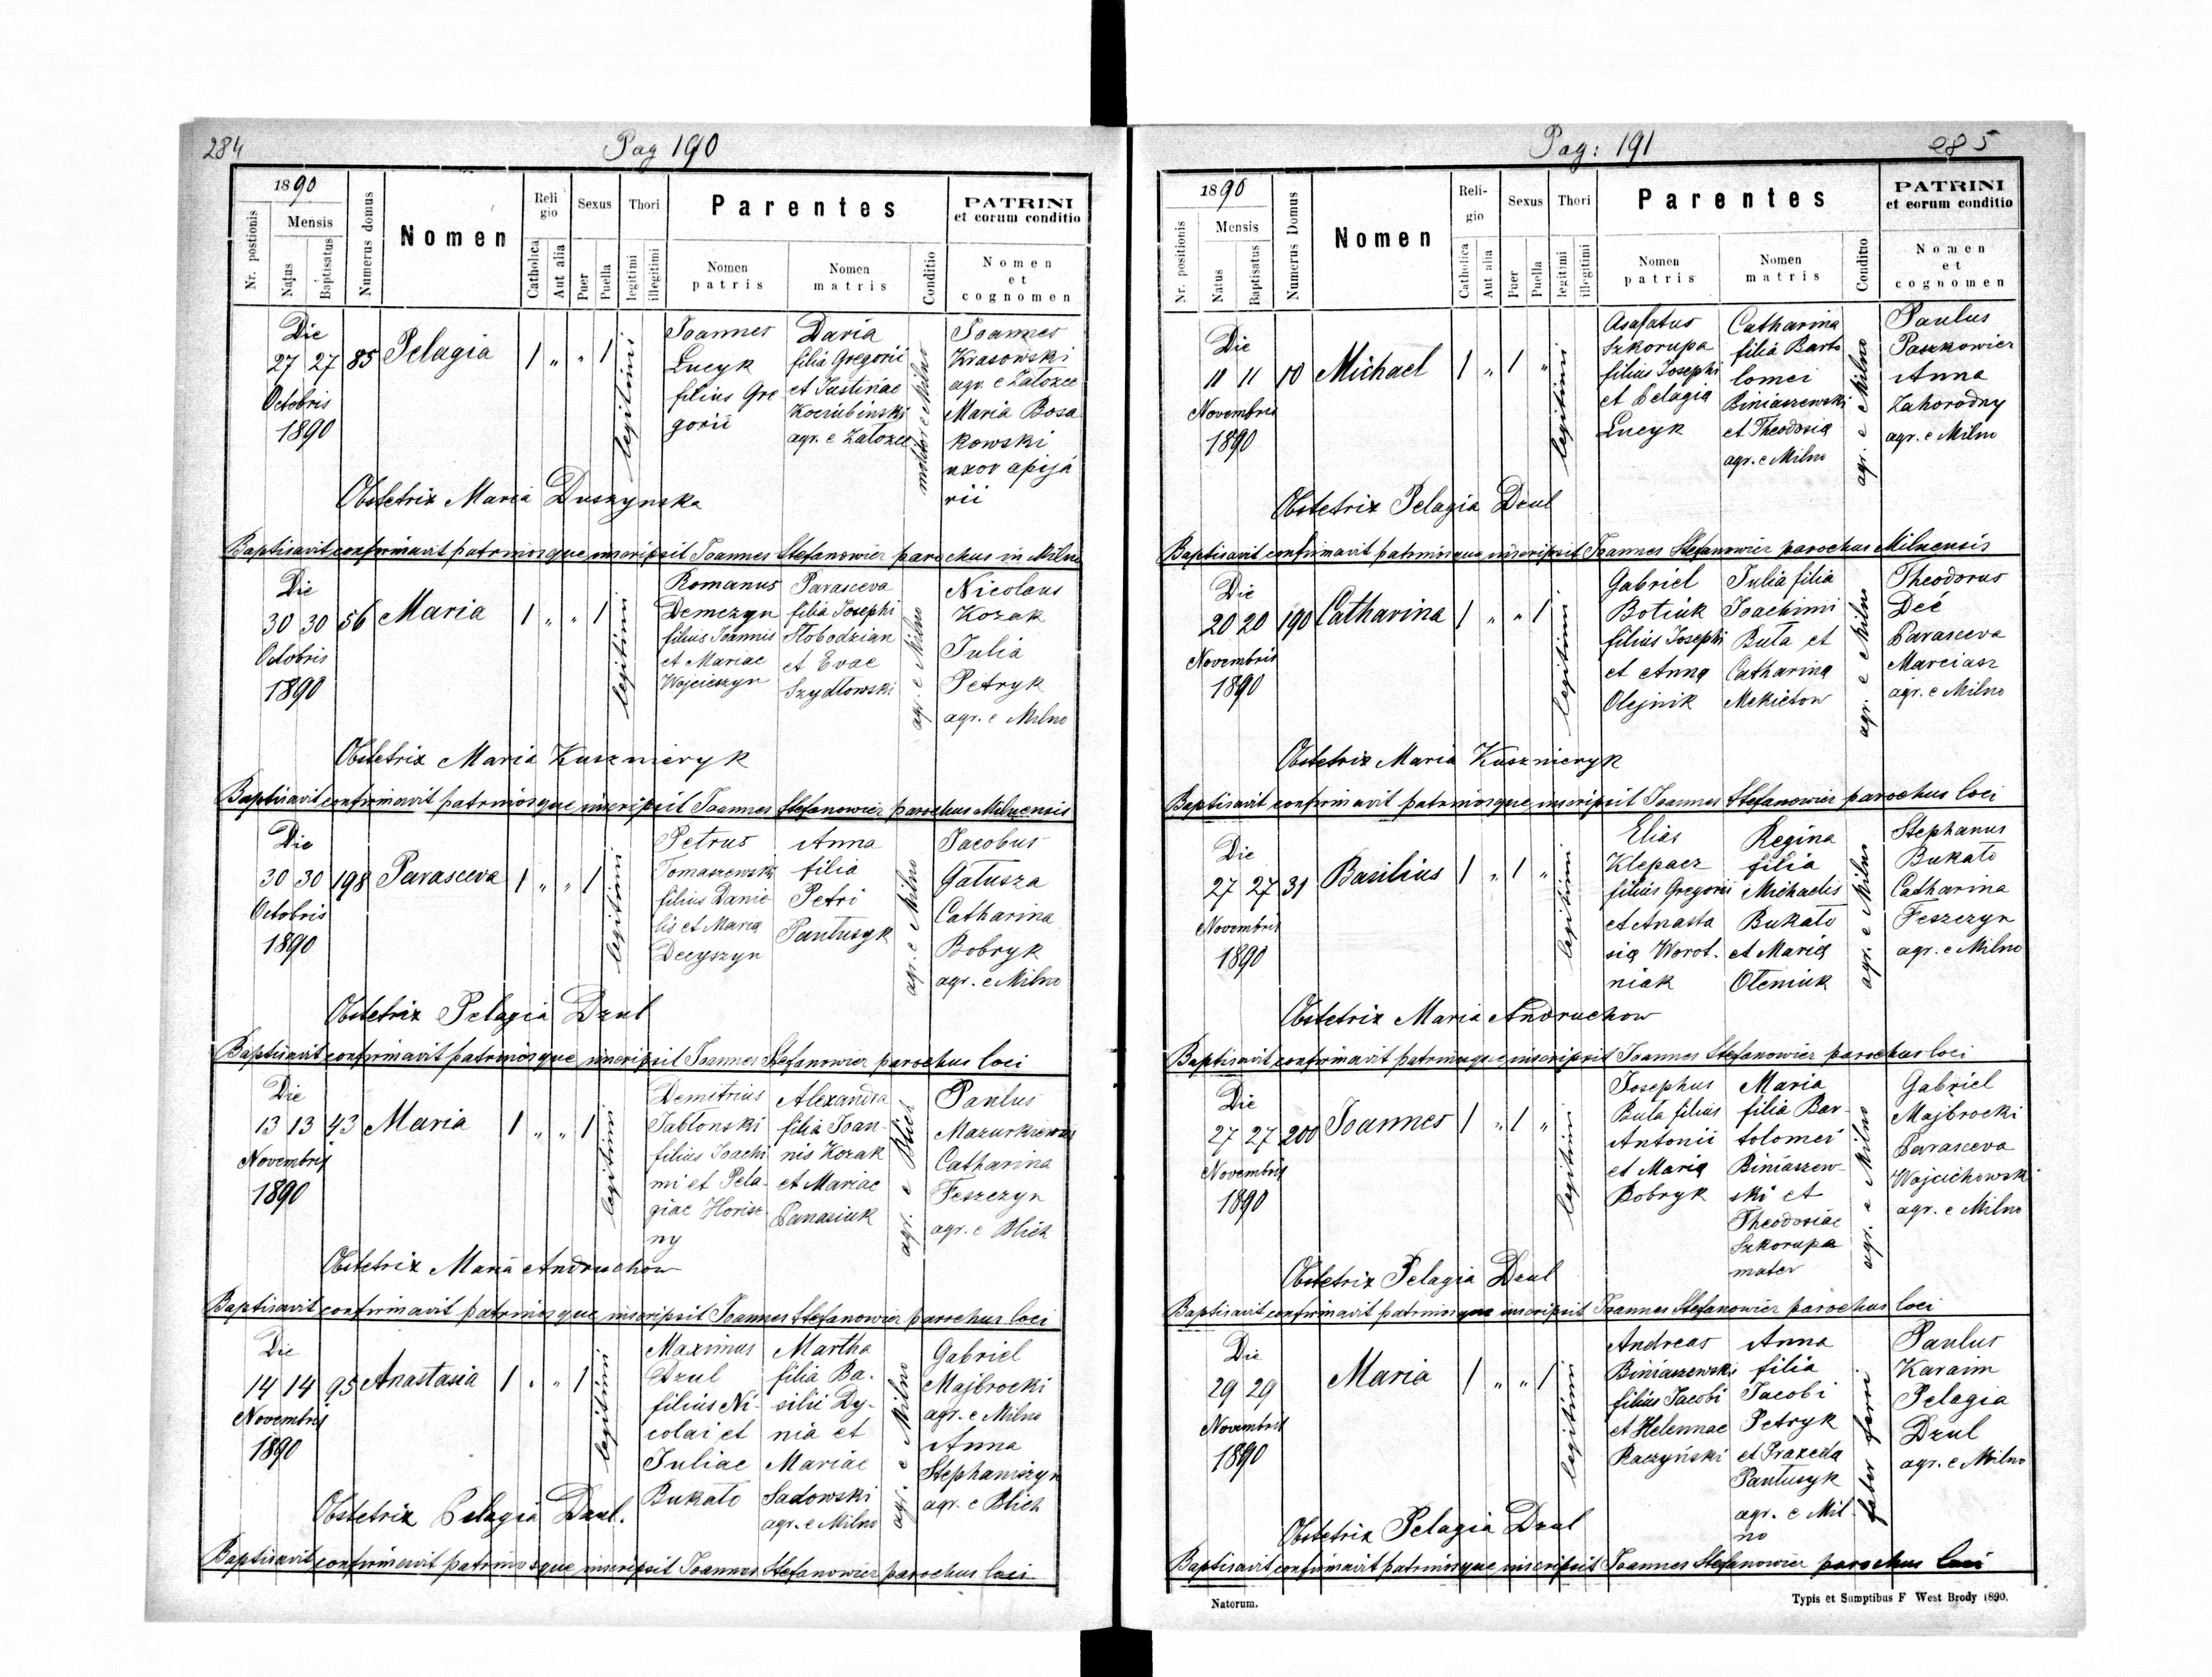 284
Pag 190
1890
Nr. postionis
Mensis
Natus
Baptisatus
Numerus domus
Nomen
Reli
gio
Catholica
Aut alia
Sexus
Puer
Puella
Thori
legitimi
illegitimi
Parentes
Nomen
patris
Nomen
matris
Conditio
PATRINI
et eorum conditio
Nomen
et
cognomen
Die
27 27 85 Pelagia 1 " " 1
Octobris
1890
legitimi
Joannes
Lucyk
filius Gre
gorii
Daria
filia Gregorii
et Justinae
Kociubinski
agr. e Załoźce
e Milno
Joannes
Krasowski
agr. e Załoźce
Maria Bosa
kowski
uxor apija
rii
Obstetrix Maria Duszynska
Baptisavit confirmavit patrinosque inscripsit Joannes Stefanowicz parochus in Milno
Die
30 30 56 Maria 1 " " 1
Octobris
1890
legitimi
Romanus
Demczyn
filius Joannis
et Mariae
Wojcieszyn
Parasceva
filia Josephi
Słobodzian
et Evae
Szydłowski
agr. e Milno
Nicolaus
Kozak
Julia
Petryk
agr. e Milno
Obstetrix Maria Kuszmieryk
Baptisavit confirmavit patrinosque inscripsit Joannes Stefanowicz parochus Milnensis
Die
30 30 198 Parasceva 1 " " 1
Octobris
1890
legitimi
Petrus
Tomaszewski
filius Danie
lis et Maria
Decyszyn
Anna
filia
Petri
Pantusyk
agr. e Milno
Jacobus
Gałusza
Catharina
Bobryk
agr. e Milno
Obstetrix Pelagia Dzul
Baptisavit confirmavit patrinosque inscripsit Joannes Stefanowicz parochus loci
Die
13 13 43 Maria 1 " " 1
Novembris
1890
legitimi
Demitrius
Jabłonski
filius Joachi
mi et Pela-
giae Horisz
ny
Alexandra
filia Joan-
nis Kozak
et Mariae
Panasiuk
agr. e Blich
Paulus
Mazurkiewicz
Catharina
Feszczyn
agr. e Blich
Obstetrix Maria Andruchow
Baptisavit confirmavit patrinosque inscripsit Joannes Stefanowicz parochus loci
Die
14 14 95 Anastasia 1 " " 1
Novembris
1890
legitimi
Maximus
Dzul
filius Ni-
colai et
Juliae
Bukato
Martha
filia Ba-
silii Dy-
nia et
Mariae
Sadowski
agr. e Milno
agr. e Milno
Gabriel
Majbrocki
agr. e Milno
Anna
Stephaniszyn
agr. e Blich
Obstetrix Pelagia Dzul.
Baptisavit confirmavit patrinosque inscripsit Joannes Stefanowicz parochus loci
Pag: 191
285
1890
Nr. positionis
Mensis
Natus
Baptisatus
Numerus Domus
Nomen
Reli-
gio
Catholica
Aut alia
Sexus
Puer
Puella
Thori
legitimi
illegitimi
Parentes
Nomen
patris
Nomen
matris
Conditio
PATRINI
et eorum conditio
Nomen
et
cognomen
Die
11 11 10 Michael 1 " 1 "
Novembris
1890
legitimi
Asafatus
Szkorupa
filius Josephi
et Pelagia
Lucyk
Catharina
filia Barto
lomei
Biniaszewski
et Theodosia
agr. e Milno
agr. e Milno
Paulus
Paszkowicz
Anna
Zahorodny
agr. e Milno
Obstetrix Pelagia Dzul
Baptisavit confirmavit patrinosque inscripsit Joannes Stefanowicz parochus Milnensis
Die
20 20 190 Catharina 1 " " 1
Novembris
1890
legitimi
Gabriel
Botiuk
filius Josephi
et Anna
Olejnik
Julia filia
Joachimi
Buta et
Catharina
Mekietow
agr. e Milno
Theodorus
Deć
Parasceva
Marciasz
agr. e Milno
Obstetrix Maria Kuszmieryk
Baptisavit confirmavit patrinosque inscripsit Joannes Stefanowicz parochus loci
Die
27 27 31 Basilius 1 " 1 "
Novembris
1890
legitimi
Elias
Klepacz
filius Gregorii
et Anasta
sia Worot.
niak
Regina
filia
Michaelis
Bukato
et Maria
Oleniuk
agr. e Milno
Stephanus
Bukato
Catharina
Feszczyn
agr. e Milno
Obstetrix Maria Andruchow
Baptisavit confirmavit patrinosque inscripsit Joannes Stefanowicz parochus loci
Die
27 27 200 Joannes 1 " 1 "
Novembris
1890
legitimi
Josephus
Buta filius
Antonii
et Maria
Bobryk
Maria
filia Bar-
tolomei
Biniaszew-
ski et
Theodosiae
Szkorupa
mater
agr. e Milno
Gabriel
Majbrocki
Parasceva
Wojcichowski
agr. e Milno
Obstetrix Pelagia Dzul
Baptisavit confirmavit patrinosque inscripsit Joannes Stefanowicz parochus loci
Die
29 29 Maria 1 " " 1
Novembris
1890
legitimi
Andreas
Biniaszewski
filius Jacobi
et Helennae
Raczyński
Anna
filia
Jacobi
Petryk
et Praxeda
Pantusyk
agr. e Mil-
no
faber ferri.
Paulus
Karaim
Pelagia
Dzul
agr. e Milno
Obstetrix Pelagia Dzul
Baptisavit confirmavit patrinosque inscripsit Joannes Stefanowicz parochus loci
Natorum.
Typis et Sumptibus F West Brody 1890.